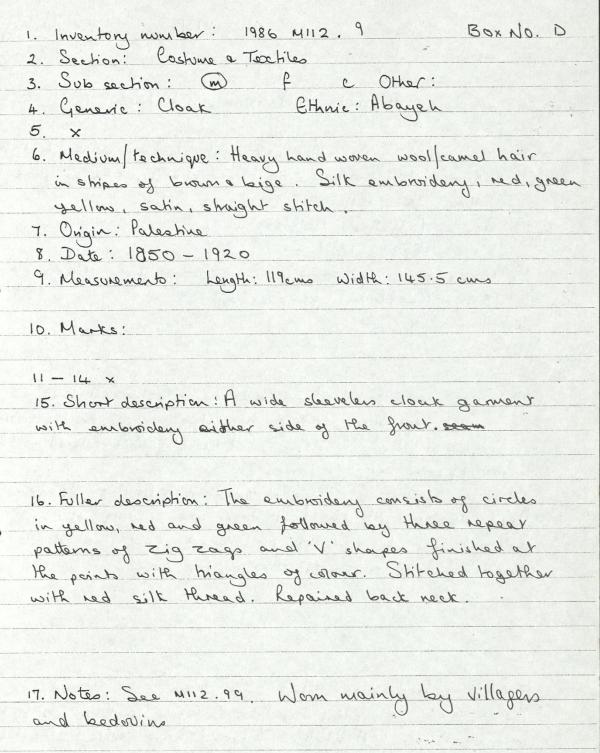 1. Inventory number: 1986 M112.9 Box No. D
2. Section: Costume & Textiles
3. Sub section: m f c Other:
4. Generic: Cloak Ethnic: Abayeh
5. x
6. Medium/technique: Heavy hand woven wool/camel hair
in stripes of brown & beige. Silk embroidery, red, green
yellow, satin, straight stitch.
7. Origin: Palestine
8. Date: 1850 - 1920
9. Measurements: Length: 119cms Width: 145.5 cms
10. Marks:
11 - 14 x
15. Short description: A wide sleeveless cloak garment
with embroidery either side of the front. seam
16. Fuller description: The embroidery consists of circles
in yellow, red and green followed by three repeat
patterns of zig zags and 'V' shapes finished at
the points with triangles of colour. Stitched together
with red silk thread. Repaired back neck.
17. Notes: See M112.99. Worn mainly by villagers
and bedouins